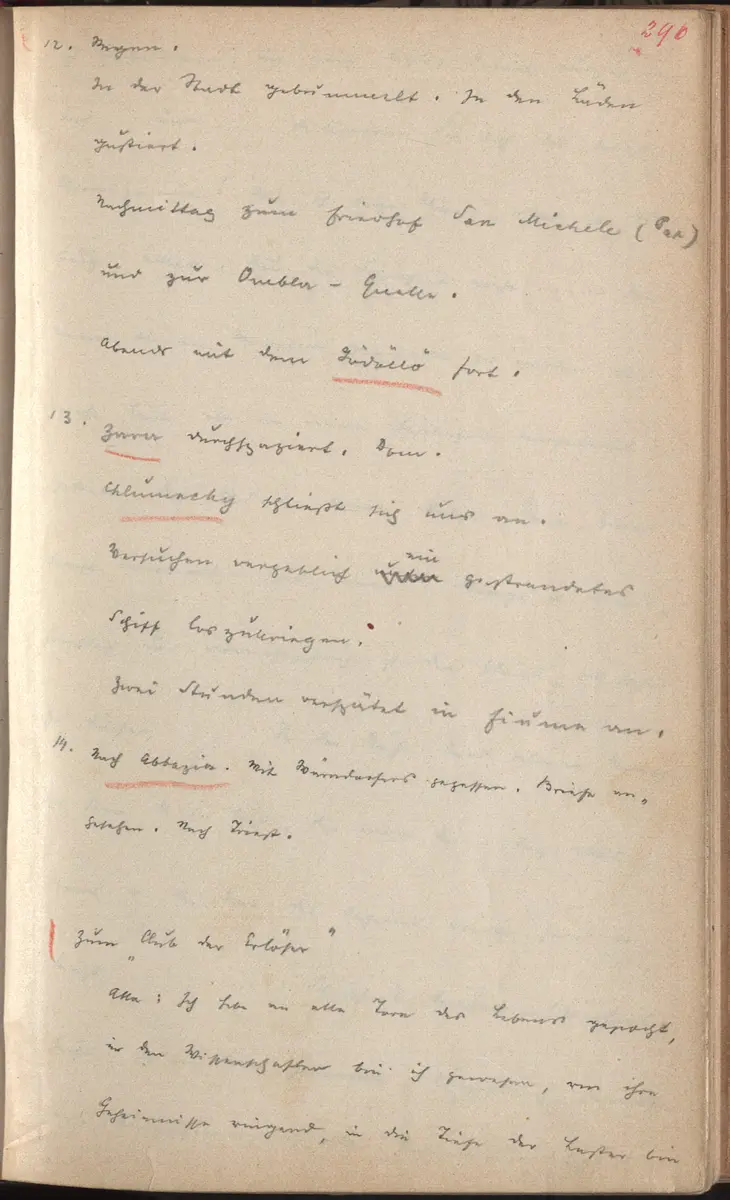 290
12. Regen.
In der Stadt gebummelt. In den Läden
gustiert.
Nachmittag zum Friedhof San Michele (Pax)
und zur Ombla-Quelle.
Abends mit dem Gödöllö fort.
13. Zara durchspaziert. Dom.
Chlumecky schließt sich uns an.
Versuchen vergeblich ein gestrandetes
Schiff loszukriegen.
Zwei Stunden verspätet in Fiume an.
14. Nach Abbazia. Mit Wärndorfers gegessen. Briefe an-
gesehen. Nach Triest.
Zum „Club der Erlöser"
Alle: Ich habe an alle Tore des Lebens gepocht,
in den Wissenschaften bin ich gewesen, um ihre
Geheimnisse ringend, in die Tiefe der Laster bin